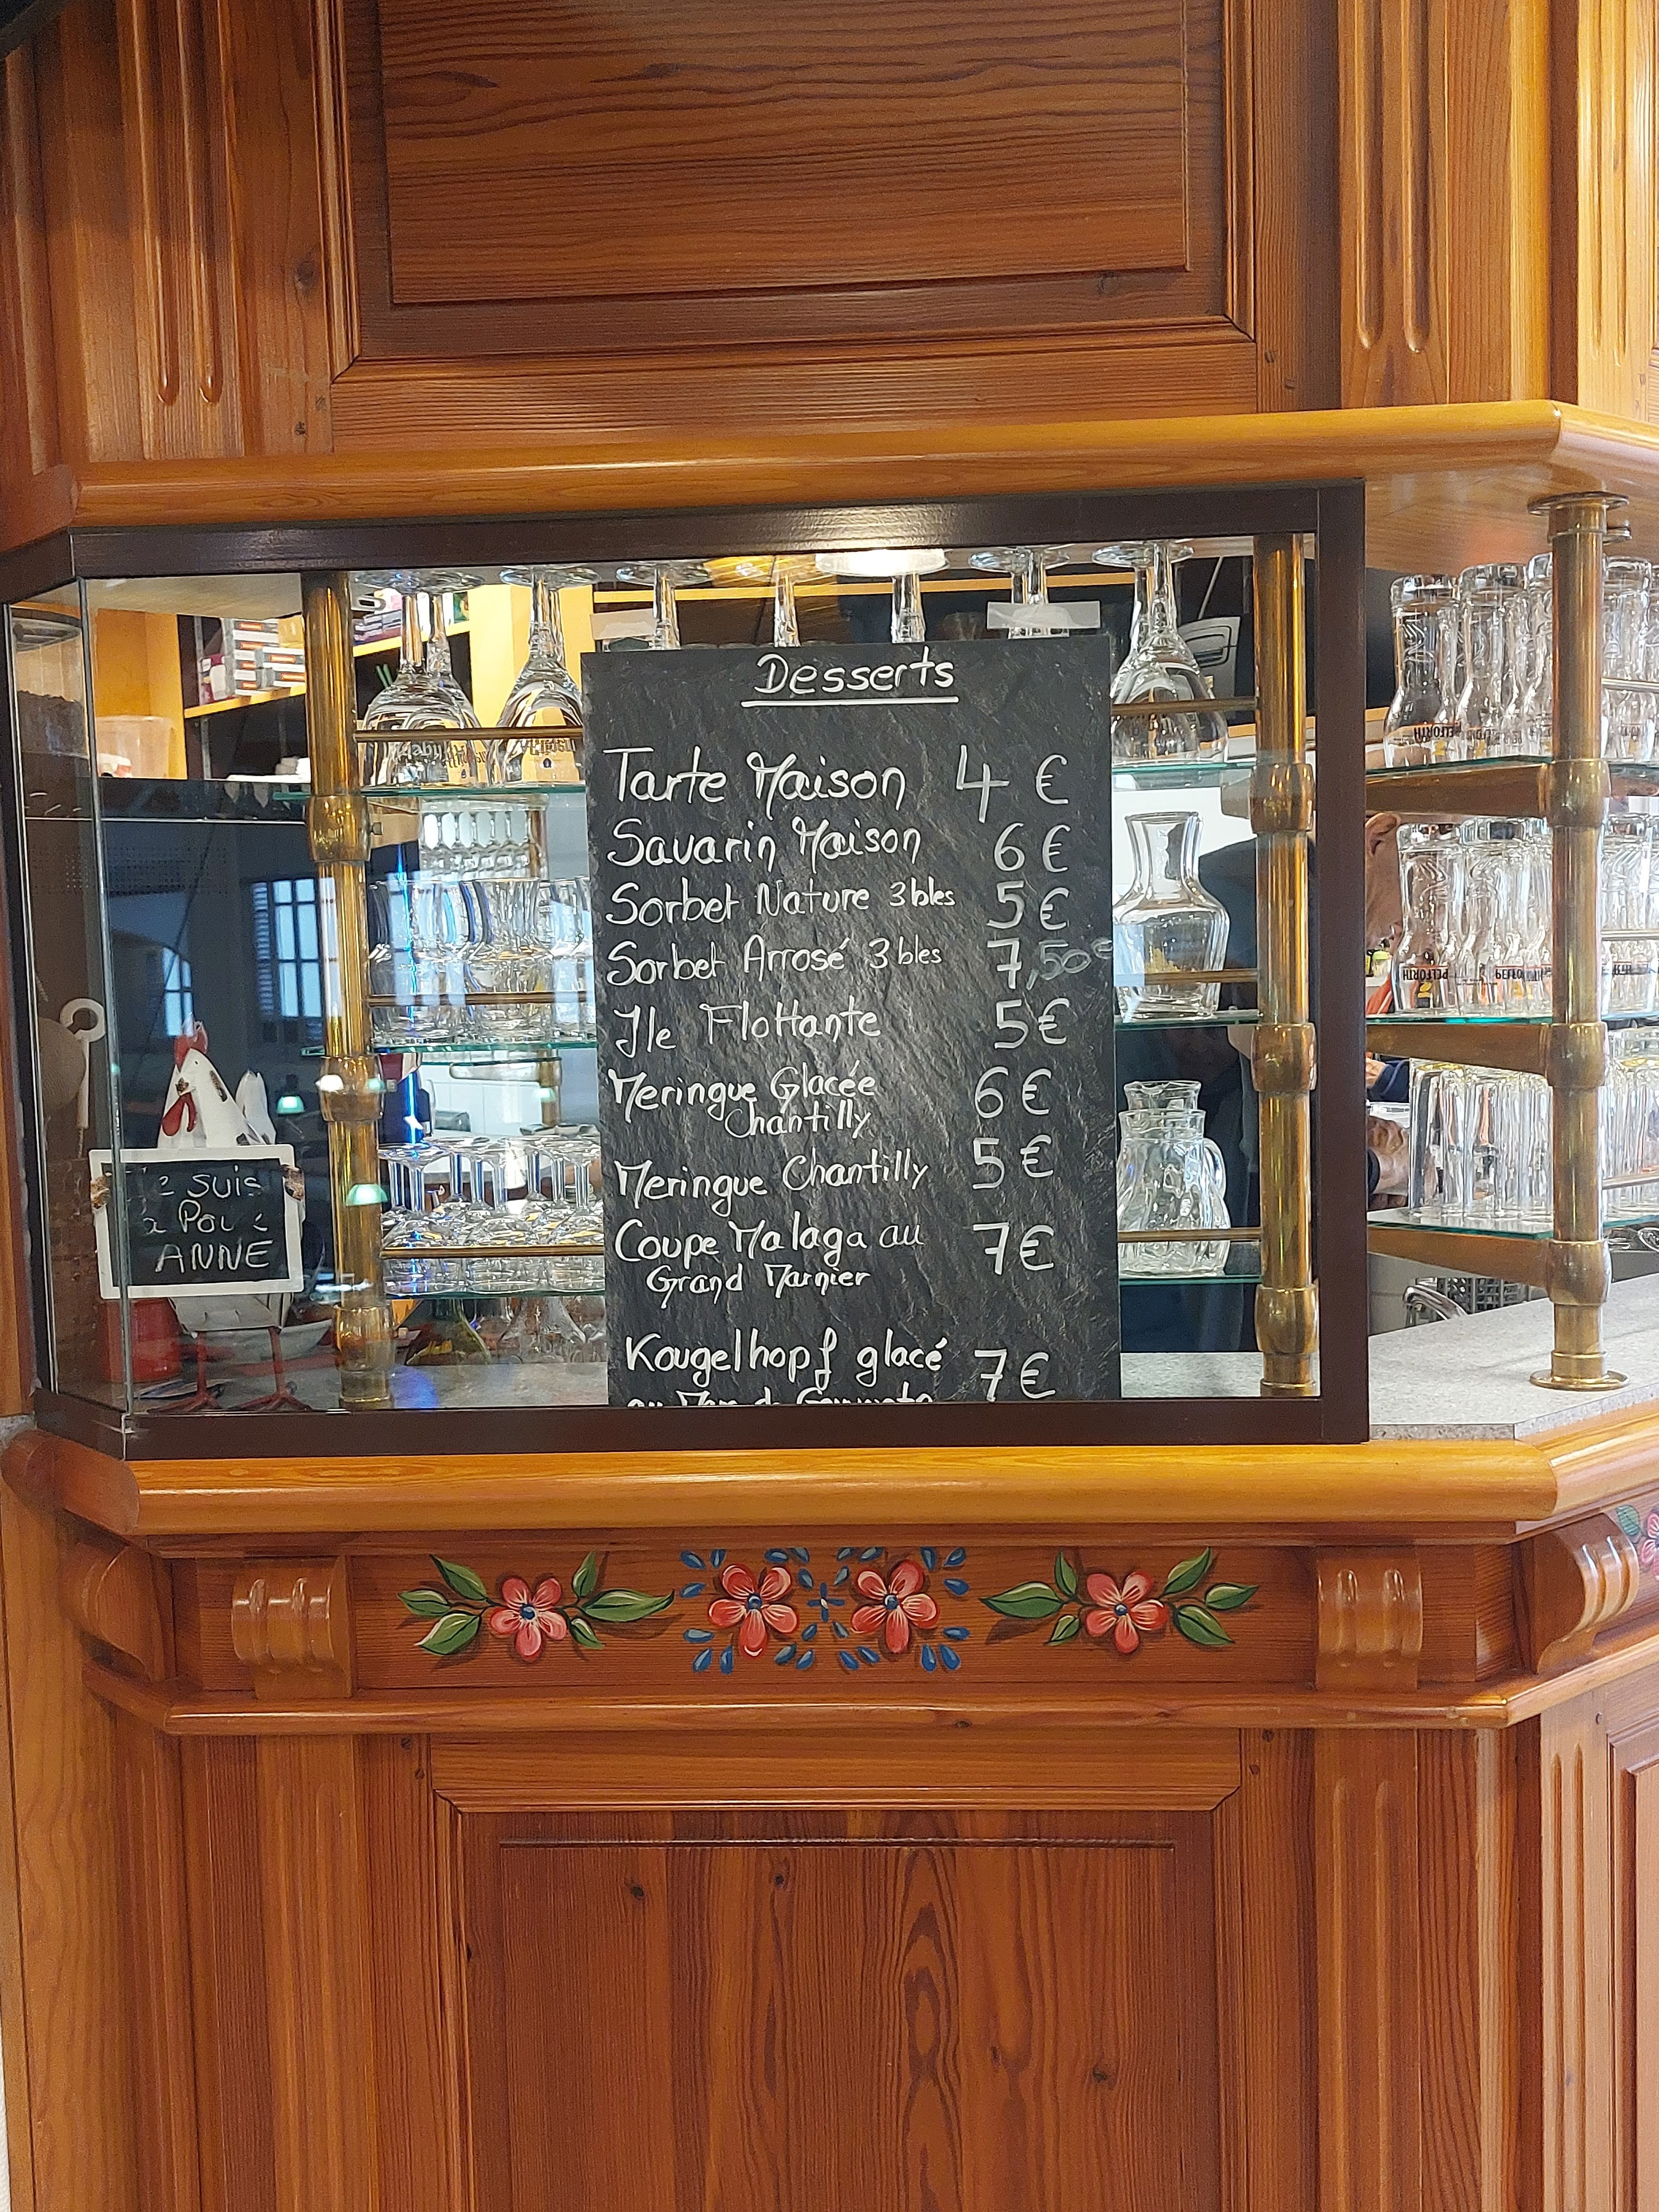 Desserts
Tarte Maison 4 €
Savarin Maison 6 €
Sorbet Nature 3 bles 5 €
Sorbet Arrosé 3 bles 7,50 €
Ile Flottante 5 €
Meringue Glacée 6 €
Chantilly
Meringue Chantilly 5 €
Coupe Malaga au 7 €
Grand Marnier
Kougelhopf glacé 7 €
au
suis
ANNE
PELFORTH
PELFORTH